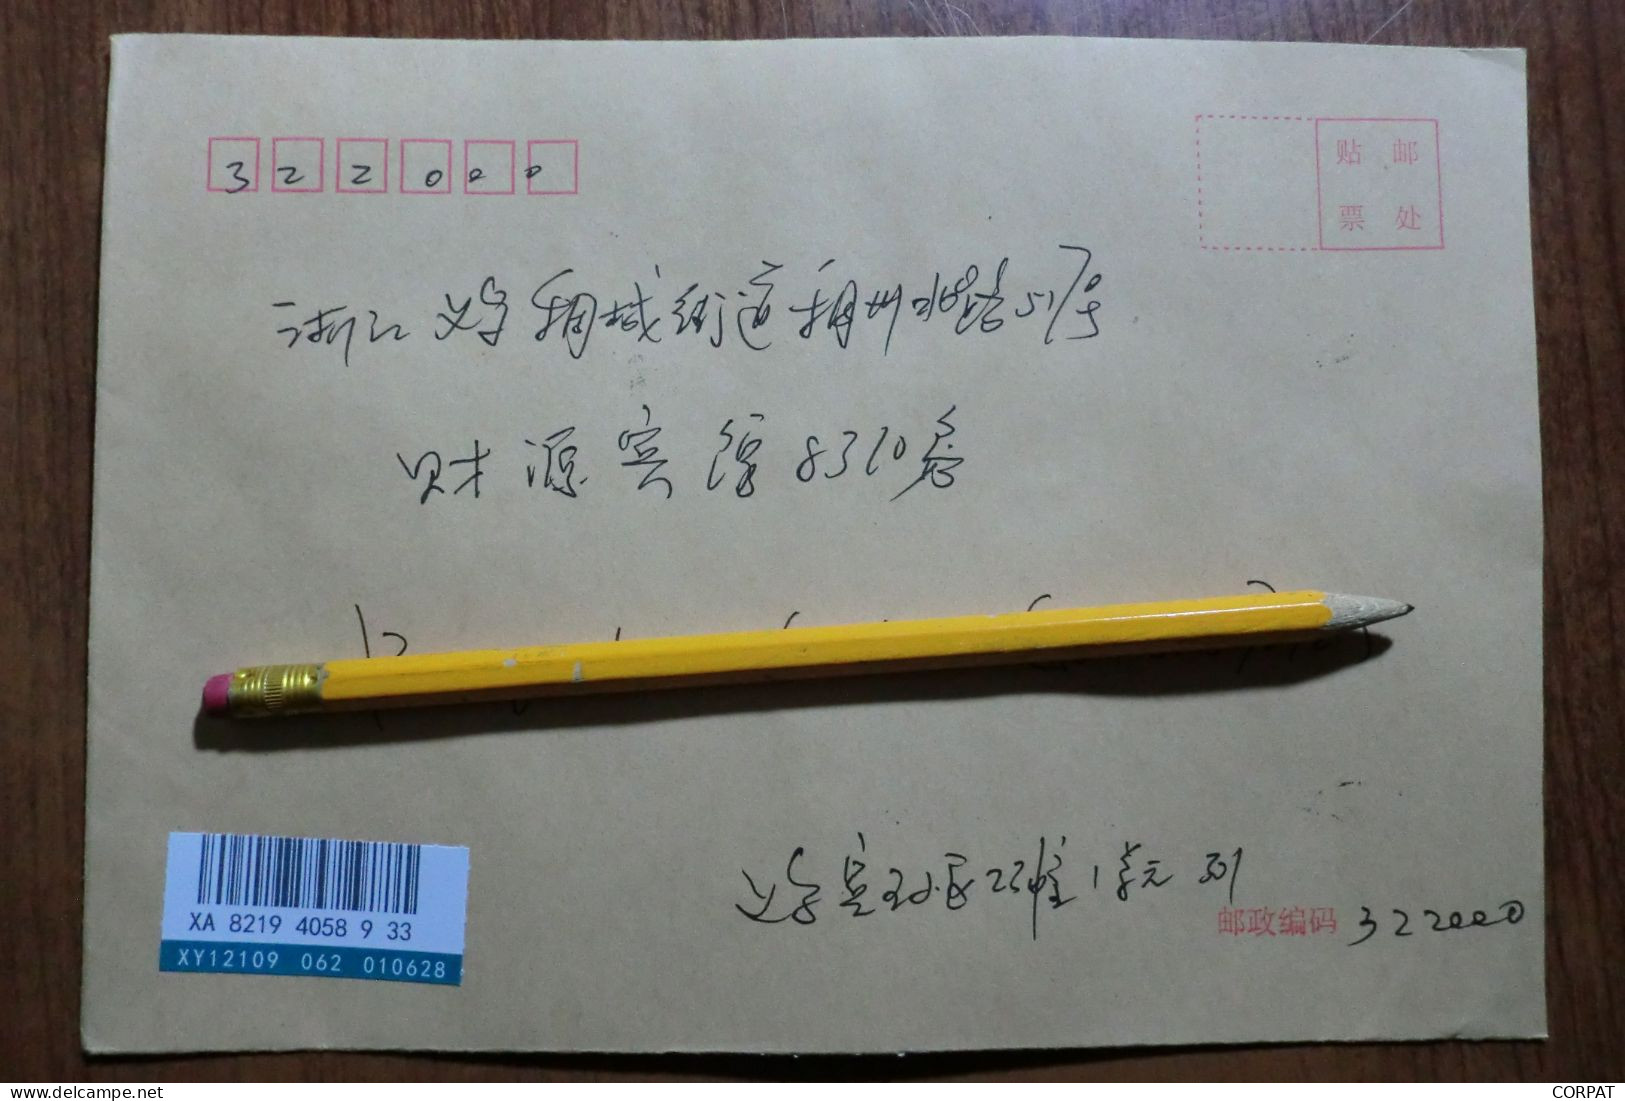 322000
贴 邮
票 处
浙江义乌稠城街道稠州北路51号
财源宾馆8310房
XA 8219 4058 9 33
XY12109 062 010628
义乌宾王 23幢1单元
邮政编码 322000
CORPAT